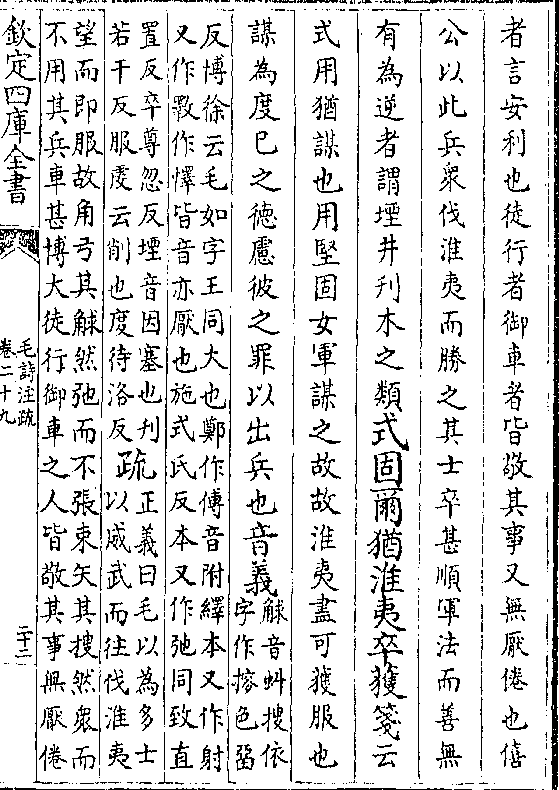 者言安利也徒行者御車者皆敬其事又無厭倦也僖
公以此兵衆伐淮夷而勝之其士卒甚順軍法而善無
有為逆者謂堙井刋木之類式固爾猶淮夷卒獲箋云
式用猶謀也用堅固女軍謀之故故淮夷盡可獲服也
謀為度已之徳慮彼之罪以出兵也音義
觩音虯搜依
字作搜色留
反博徐云毛如字王同大也鄭作傅音附繹本又作射
又作斁作懌皆音亦厭也施式氏反本又作弛同致直
置反卒尊忽反堙音因塞也刋
若干反服䖍云削也度待洛反
疏
正義曰毛以為多士
以威武而往伐淮夷
望而即服故角弓其觩然弛而不張束矢其搜然衆而
不用其兵車甚博大徒行御車之人皆敬其事無厭倦
欽定四庫全書
毛詩注疏
卷二十九
二十二